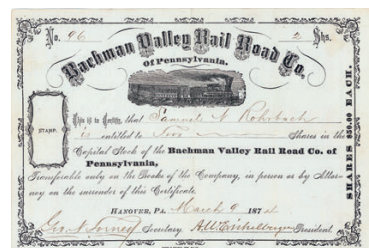 No. 26 2 Shs.
Bachman Valley Rail Road Co.
Of Pennsylvania.
STAMP.
This is to Certify, that Samuel N Rohrbach
is entitled to Two Shares in the
Capital Stock of the Bachman Valley Rail Road Co. of
Pennsylvania,
Transferable only on the Books of the Company, in person or by Attor-
ney on the surrender of this Certificate.
HANOVER, PA. March 9 187
Secretary President.
SHARES $50.00 EACH.